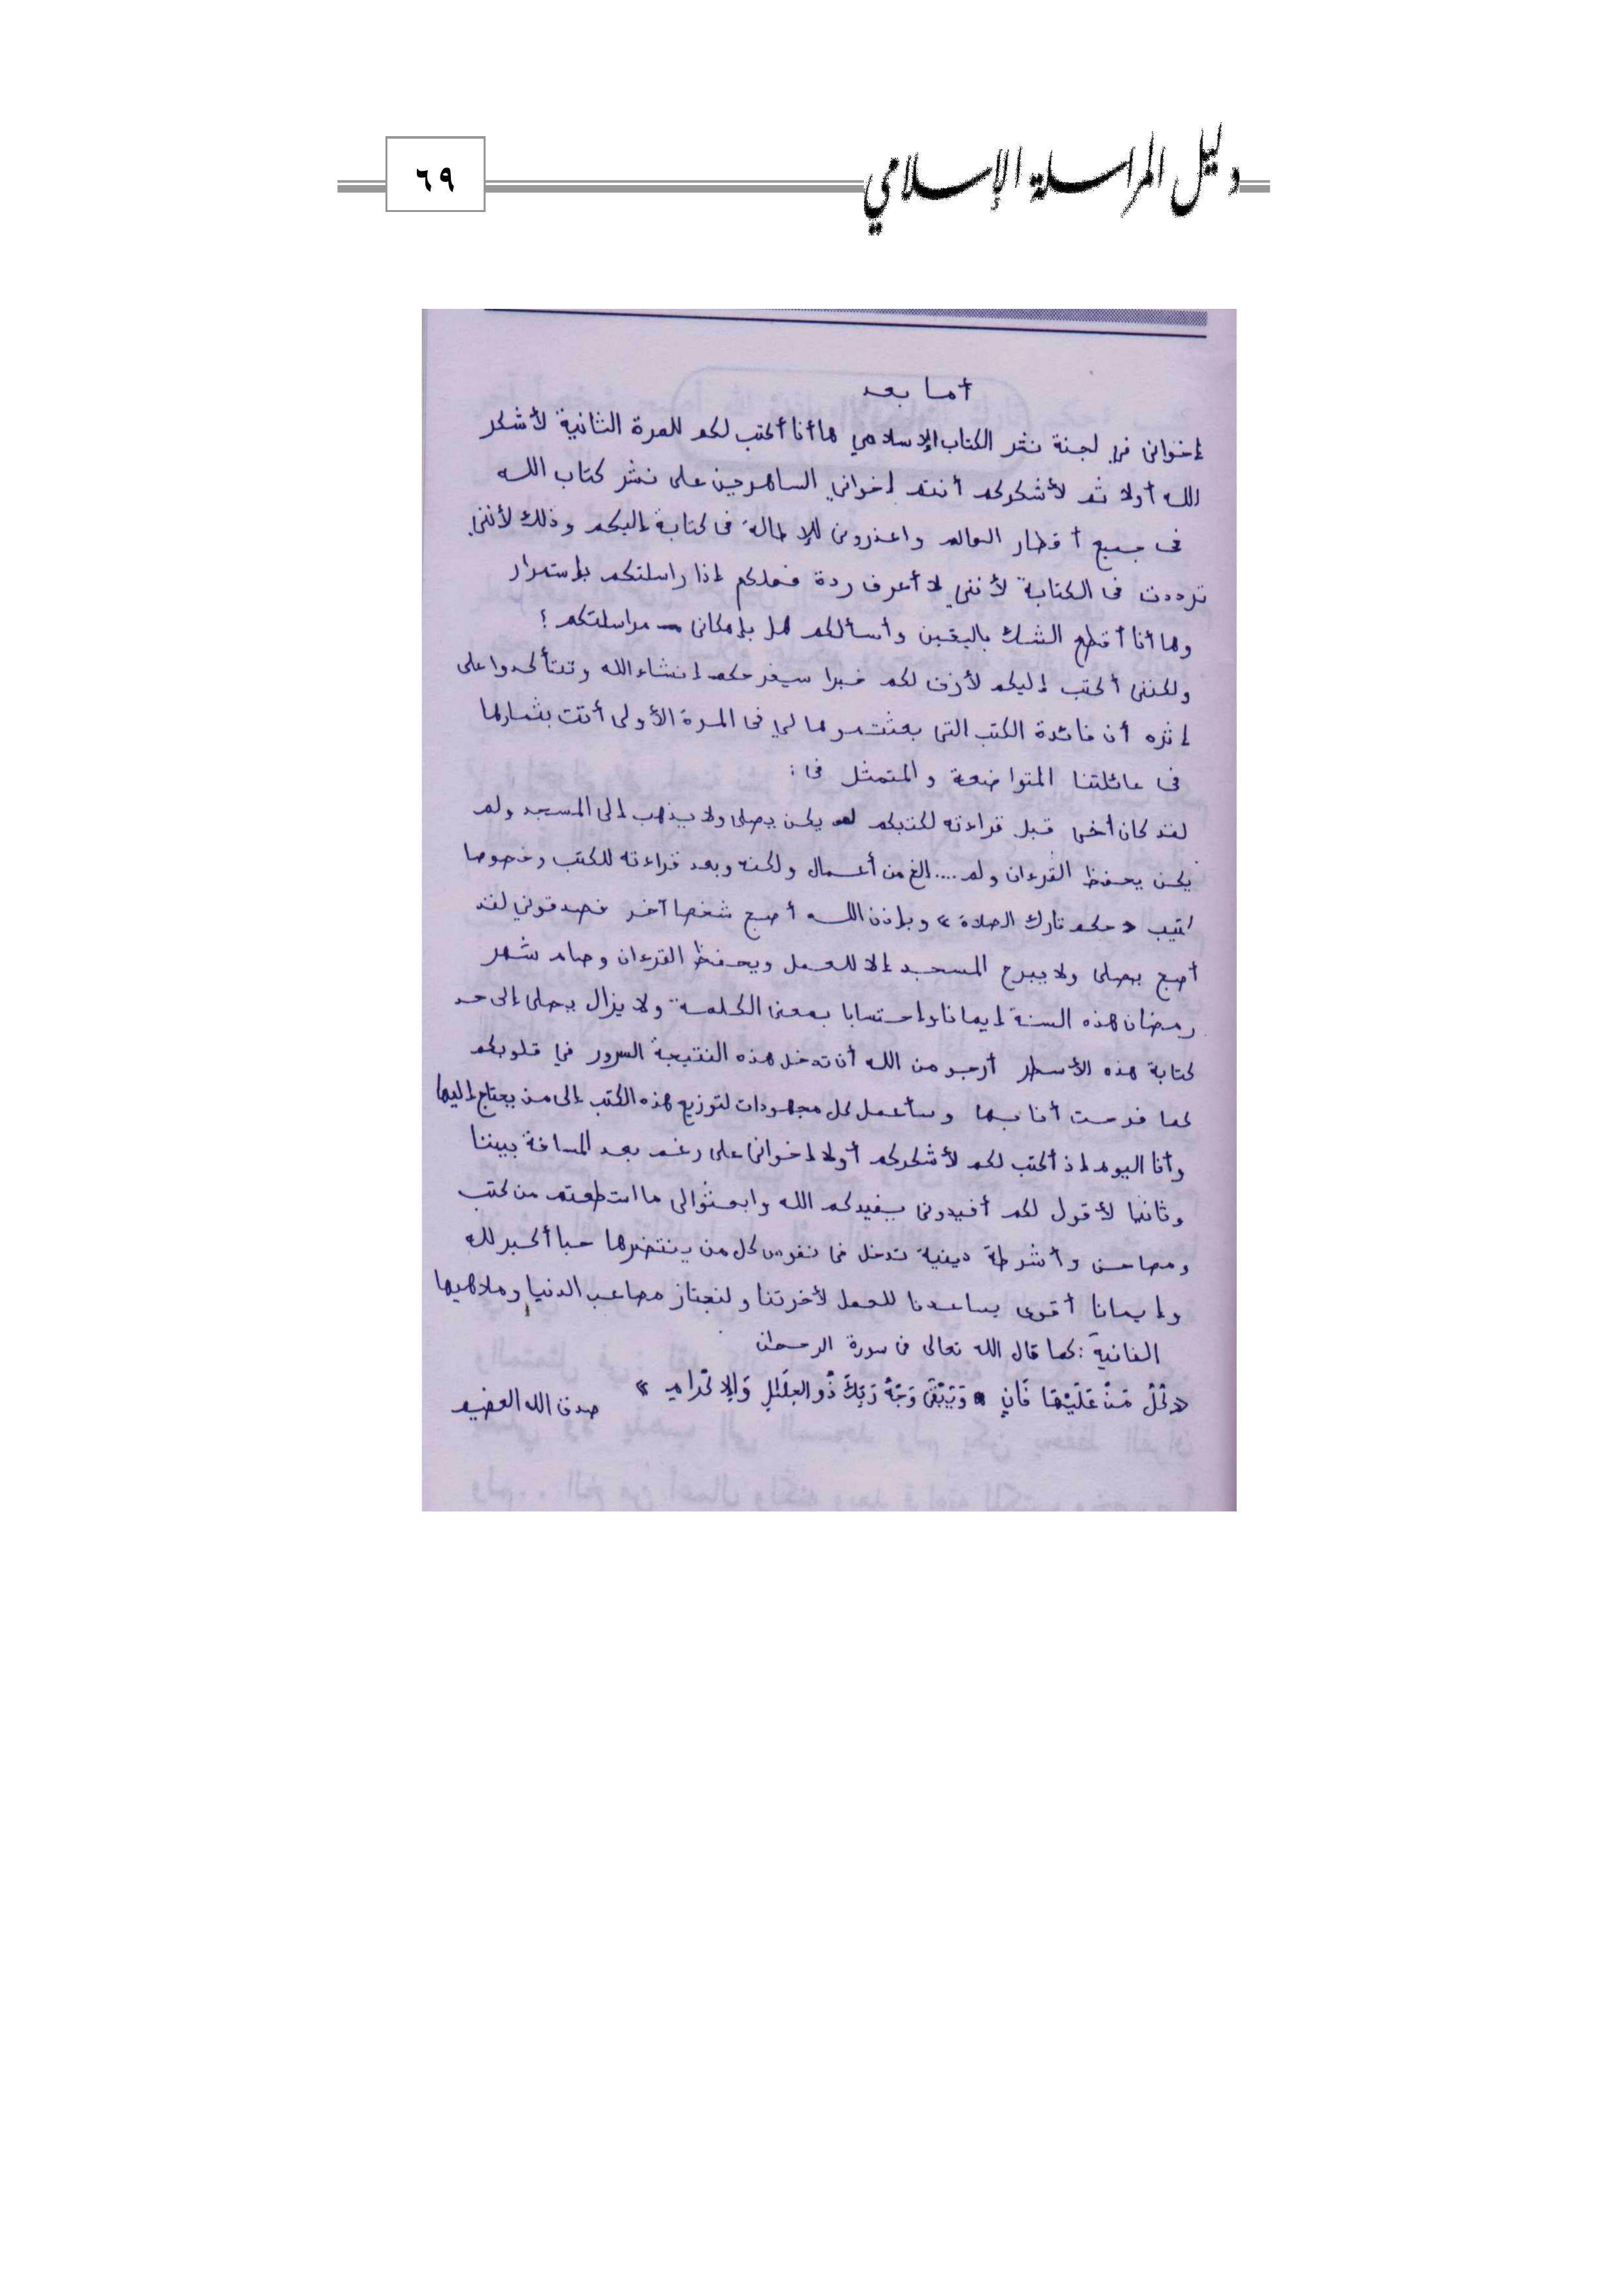 دليل المراسلة الإسلامي
٦٩
أما بعد
إخواني في لجنة نشر الكتاب الإسلامي ها أنا أكتب لكم للمرة الثانية لأشكر
الله أولا ثم لأشكركم أنتم إخواني الساهرين على نشر كتاب الله
في جميع أقطار العالم واعذروني للإطالة في كتابة إليكم وذلك لأنني
ترددت في الكتابة لأنني لا أعرف ردة فعلكم إذا راسلتكم بإستمرار
وها أنا أقطع الشك باليقين وأسألكم هل بإمكاني مراسلتكم ؟
ولكنني أكتب إليكم لأزف لكم خبرا سيفرحكم إنشاء الله وتتأكدوا على
إثره أن فائدة الكتب التي بعثتموها لي في المرة الأولى أتت بثمارها
في عائلتنا المتواضعة والمتمثل في :
لقد كان أخي قبل قراءته لكتبكم لم يكن يصلي ولا يذهب إلى المسجد ولم
يكن يحفظ القرءان ولم .... الخ من أعمال ولكنه وبعد قراءته للكتب وخصوصا
كتيب « حكم تارك الصلاة » وبإذن الله أصبح شخصا آخر فصدقوني لقد
أصبح يصلي ولا يبرح المسجد إلا للعمل ويحفظ القرءان وصام شهر
رمضان هذه السنة إيمانا وإحتسابا بمعنى الكلمة ولا يزال يصلي إلى حد
كتابة هذه الأسطر أرجو من الله أن تدخل هذه النتيجة السرور في قلوبكم
كما فرحت أنا بها وسأعمل كل مجهودات لتوزيع هذه الكتب إلى من يحتاج إليها
وأنا اليوم إذ أكتب لكم لأشكركم أولا إخواني على رغم بعد المسافة بيننا
وثانيا لأقول لكم أفيدوني يفيدكم الله وابعثوا لي ما استطعتم من كتب
ومصاحف وأشرطة دينية تدخل في نفوس كل من ينتضرها حبا أكبر لله
وإيمانا أقوى يساعدنا للعمل لأخرتنا ولنجتاز مصاعب الدنيا وملاهيها
الفانية : كما قال الله تعالى في سورة الرحمان
« كُلُّ مَنْ عَلَيْهَا فَانٍ وَيَبْقَى وَجْهُ رَبِّكَ ذُو الجَلَالِ وَالإِكْرَامِ » صدق الله العضيم